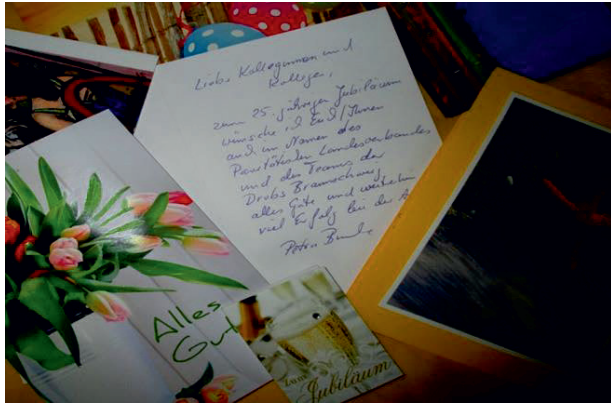 Liebe Kolleginnen und
Kollegen,
zum 25-jährigen Jubiläum
wünsche ich Euch/Ihnen
auch im Namen des
Paritätischen Landesverbandes
und des Teams der
Drobs Braunschweig
alles Gute und weiterhin
viel Erfolg bei der
Petra
Alles
Gut
Zum
Jubiläum